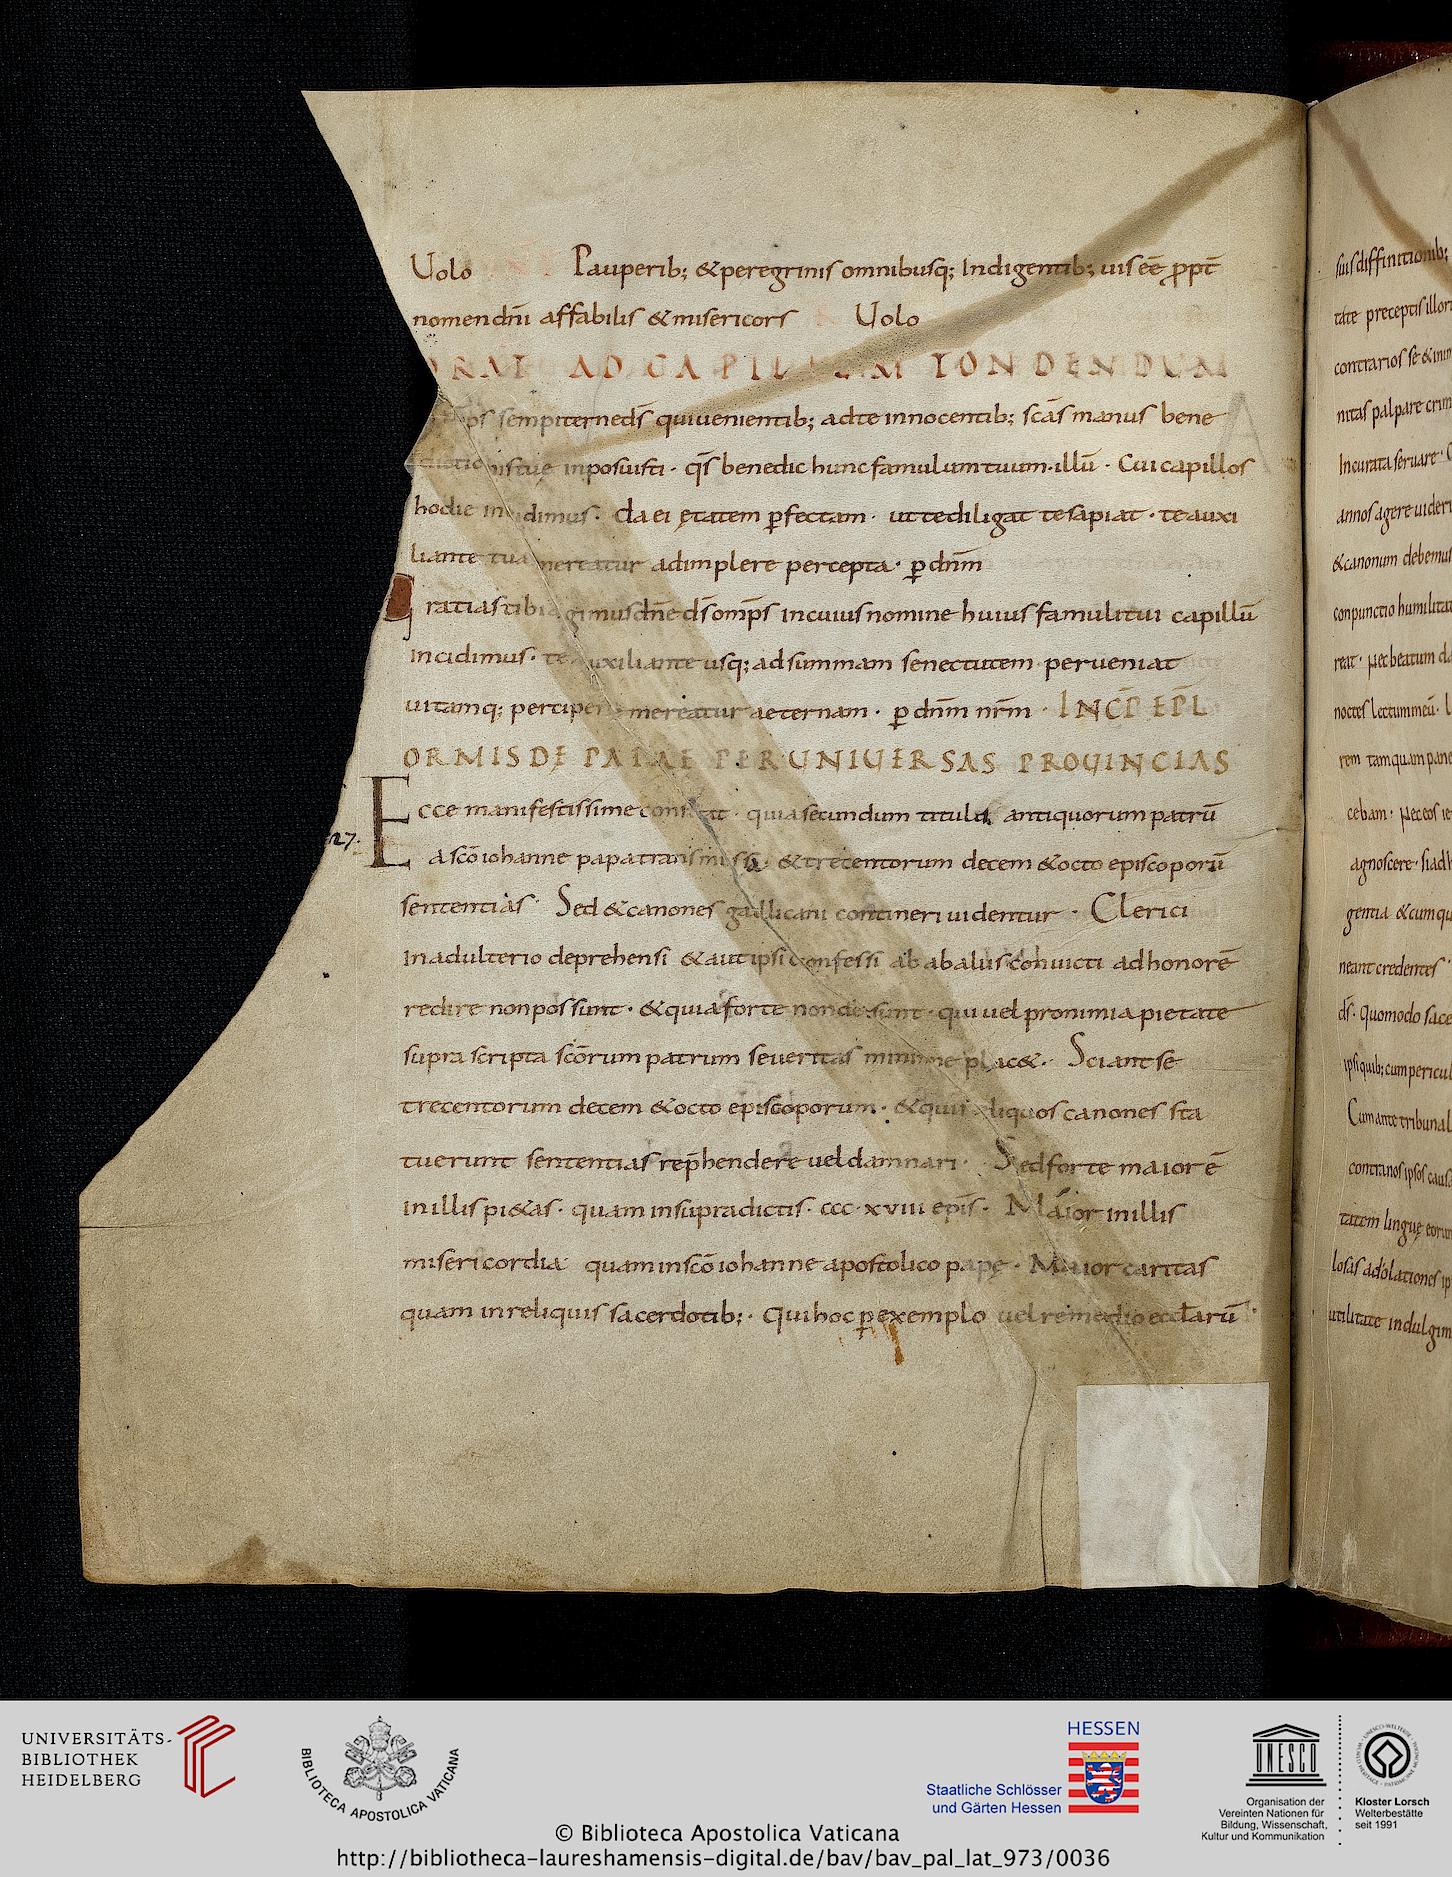 Uolo Pauperib; & peregrinis omnibusq; Indigentib; uis eē ꝓpt̄
nomen dn̄i affabilis & misericors Uolo
ORAT AD CAPILLUM TONDENDUM
sempiterne ds̄ qui uenientib; ad te innocentib; scās manus bene
inposuisti · qs̄ benedic hunc famulum tuum · illū · Cui capillos
hodie incidimus · da ei ętatem ꝑfectam · ut te diligat te sapiat · te auxi
liante tua mereatur adimplere percepta · ꝑ dnm̄
ratias tibi agimus dn̄e ds̄ omp̄s in cuius nomine huius famuli tui capillū
incidimus · te auxiliante usq; ad summam senectutem perueniat
uitamq; percipere mereatur aeternam · ꝑ dnm̄ nrm̄ · INCP̄ EPL̄
ORMISDE PAPAE PER UNIUERSAS PROUINCIAS
Ecce manifestissime constat · quia secundum titulos antiquorum patrū
27.
a scō iohanne papa transmissa · & trecentorum decem & octo episcoporū
sententias · Sed & canones gallicani contineri uidentur · Clerici
In adulterio deprehensi & aut ipsi confessi ab abalus conuicti ad honorē
redire non possunt · & quia forte non desunt · qui uel pro nimia pietate
supra scripta scōrum patrum seueritas minime plac& · Sciant se
trecentorum decem & octo episcoporum · & qui reliquos canones sta
tuerunt sententias rep̄hendere uel damnari · Sed forte maior ē
In illis pi&as · quam in supradictis · ccc · xviii epis̄ · Maior in illis
misericordia quam in scō iohanne apostolico papę · Maior caritas
quam in reliquis sacerdotib; · Qui hoc ꝑ exemplo uel remedio eccl̄arū
suis diffinitionib;
tate preceptis illor
contrarios se
nitas palpare crim
Incurata seruare ·
annos agere uideri
& canonum debemus
conpunctio humilitat
reat · Nec beatum
noctes lectum meū ·
rem tamquam pane
cebam · Nec eos
agnoscere · si
gentia & cum
neant credentes
ds̄ · quomodo sace
ipsi quib; cum pericul
Cum ante tribunal
contra nos ipsos causa
tatem linguę eorum
losas adolationes ip
utilitate indulgim
UNIVERSITÄTS-
BIBLIOTHEK
HEIDELBERG
BIBLIOTECA APOSTOLICA VATICANA
HESSEN
Staatliche Schlösser
und Gärten Hessen
UNESCO
Organisation der
Vereinten Nationen für
Bildung, Wissenschaft,
Kultur und Kommunikation
Kloster Lorsch
Welterbestätte
seit 1991
© Biblioteca Apostolica Vaticana
http://bibliotheca-laureshamensis-digital.de/bav/bav_pal_lat_973/0036